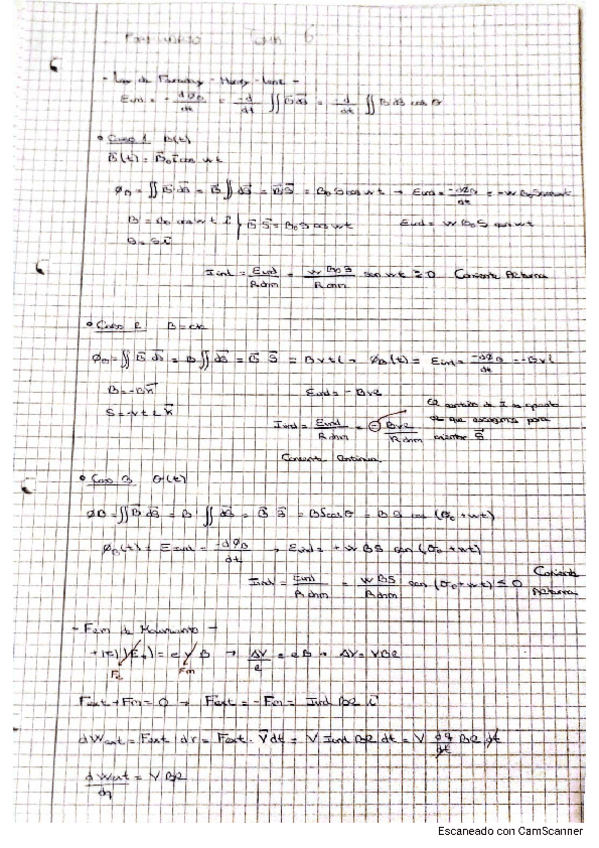 Tema 6
- Ley de Faraday - Henry - Lenz -
Eind = - dφB/dt = -d/dt ∬ B⃗ dS⃗ = -d/dt ∬ B dS cos θ
• Caso 1 B(t)
B⃗(t) = B⃗o cos wt
φB = ∬ B⃗ dS⃗ = B⃗ ∬ dS⃗ = B⃗ S⃗ = Bo S cos wt → Eind = -dφB/dt = -w Bo S
B = Bo cos wt i⃗ | B⃗ S⃗ = Bo S cos wt Eind = w Bo S sen wt
S = S i⃗
Iind = Eind/Rohm = w Bo S/Rohm sen wt ≥ 0 Corriente Alterna
• Caso 2 B = cte
φB = ∬ B⃗ dS⃗ = B ∬ dS⃗ = B⃗ S⃗ = B v t l → φB(t) = Eind = -dφB/dt = -B v l
B = -B k⃗ Eind = - B v l
S = -v t l k⃗ El sentido de I es opuesto
Iind = Eind/Rohm = - B v l/Rohm al que escogemos para
orientar S⃗
Corriente Continua
• Caso 3 θ(t)
φB = ∬ B⃗ dS⃗ = B ∬ dS⃗ = B⃗ S⃗ = B S cos θ = B S cos (θo + wt)
φB(t) = Eind = -dφB/dt → Eind = + w B S sen (θo + wt)
Iind = Eind/Rohm = w B S/Rohm sen (θo + wt) ≤ 0 Corriente
Alterna
- Fem de Movimiento -
= e v B → ΔV/l = v B → ΔV = V B l
Fe Fm
Fext + Fm = 0 → Fext = - Fm = Iind B l i⃗
dWext = Fext · dr = Fext · V⃗ dt = V Iind B l dt = V dq/dt B l dt
dWext/dq = V B l
Escaneado con CamScanner